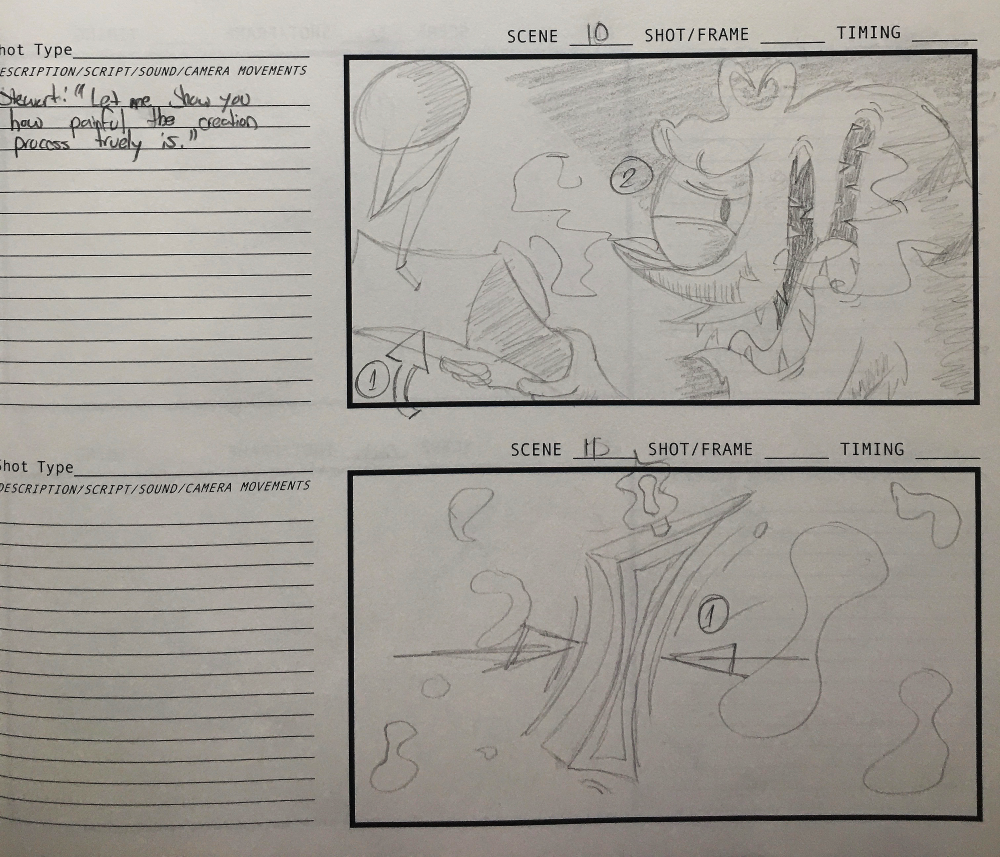 SCENE 10 SHOT/FRAME TIMING
hot Type
ESCRIPTION/SCRIPT/SOUND/CAMERA MOVEMENTS
Stewart: "Let me show you
how painful the creation
process truely is."
2
1
SCENE SHOT/FRAME TIMING
Shot Type
DESCRIPTION/SCRIPT/SOUND/CAMERA MOVEMENTS
1